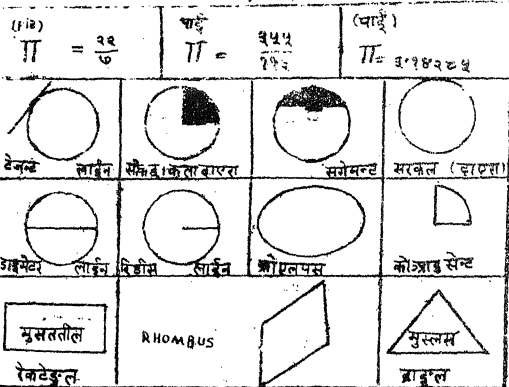 (पाई) π = २२/७
पाई π = ३५५/११३
(पाई) π = ३.१४२८५
टेजन्ट लाईन
सैक्टर कता दाएरा
सगेमन्ट
सरकल (दाएरा)
डाइमेटर लाईन
रेडीस लाईन
कोआड्रु सेन्ट
मुसततील
रेकटेङ्गल
RHOMBUS
मुस्लस
ट्राइङ्गल